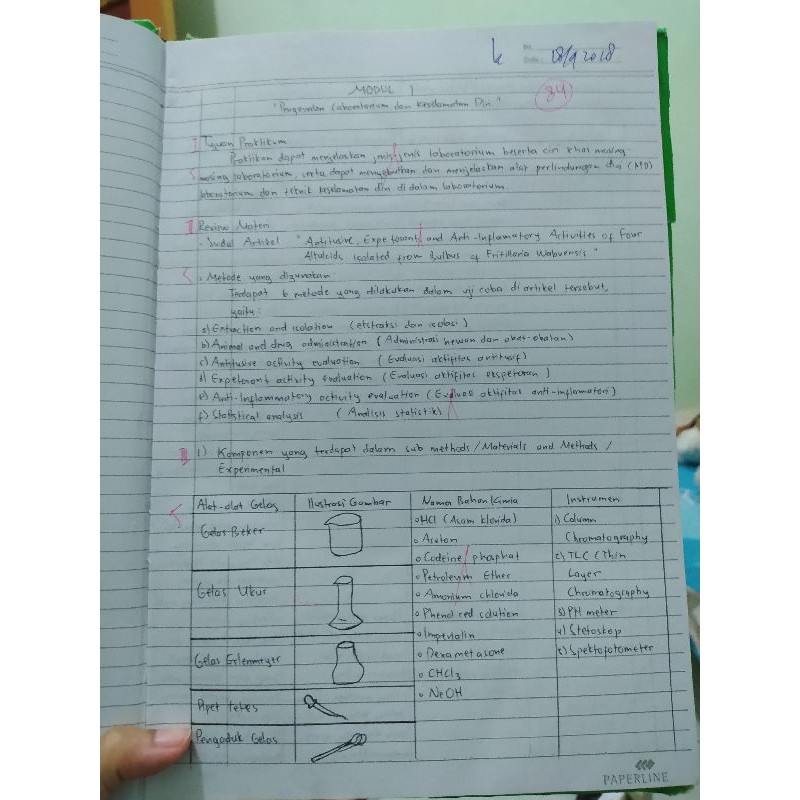 No.
Date: 18/9 2018
MODUL 1
"Pengenalan Laboratorium dan Keselamatan Diri"
84
I Tujuan Praktikum
Praktikan dapat menjelaskan jenis-jenis laboratorium beserta ciri khas masing
masing laboratorium, serta dapat menyebutkan dan menjelaskan alat perlindungan diri (APD)
laboratorium dan teknik keselamatan diri di dalam laboratorium.
II Review Materi
• Judul Artikel "Antitusive, Expectorant and Anti-Inflamatory Activities of Four
Alkaloids Isolated from Bulbus of Fritillaria Wabuensis"
• Metode yang digunakan
Terdapat 6 metode yang dilakukan dalam uji coba di artikel tersebut,
yaitu:
a) Extraction and isolation (ekstraksi dan isolasi)
b) Animal and drug administration (Administrasi hewan dan obat-obatan)
c) Antitusive activity evaluation (Evaluasi aktifitas antitusif)
d) Expetorant activity evaluation (Evaluasi aktifitas ekspetoran)
e) Anti-Inflammatory activity evaluation (Evaluasi aktifitas anti-inflamatori)
f) Statistical analysis (Analisis statistik)
III 1) Komponen yang terdapat dalam sub methods / Materials and Methods /
Experimental
Alat-alat Gelas
Ilustrasi Gambar
Nama Bahan Kimia
Instrumen
Gelas Beker
Gelas Ukur
Gelas Erlenmeyer
Pipet tetes
Pengaduk Gelas
o HCl (Asam klorida)
o Aseton
o Codeine phosphat
o Petroleum Ether
o Amonium chlorida
o Phenol red solution
o Imperialin
o Dexametasone
o CHCl3
o NaOH
1) Column
Chromatography
2) TLC (Thin
Layer
Chromatography
3) PH meter
4) Stetoskop
5) Spektofotometer
PAPERLINE